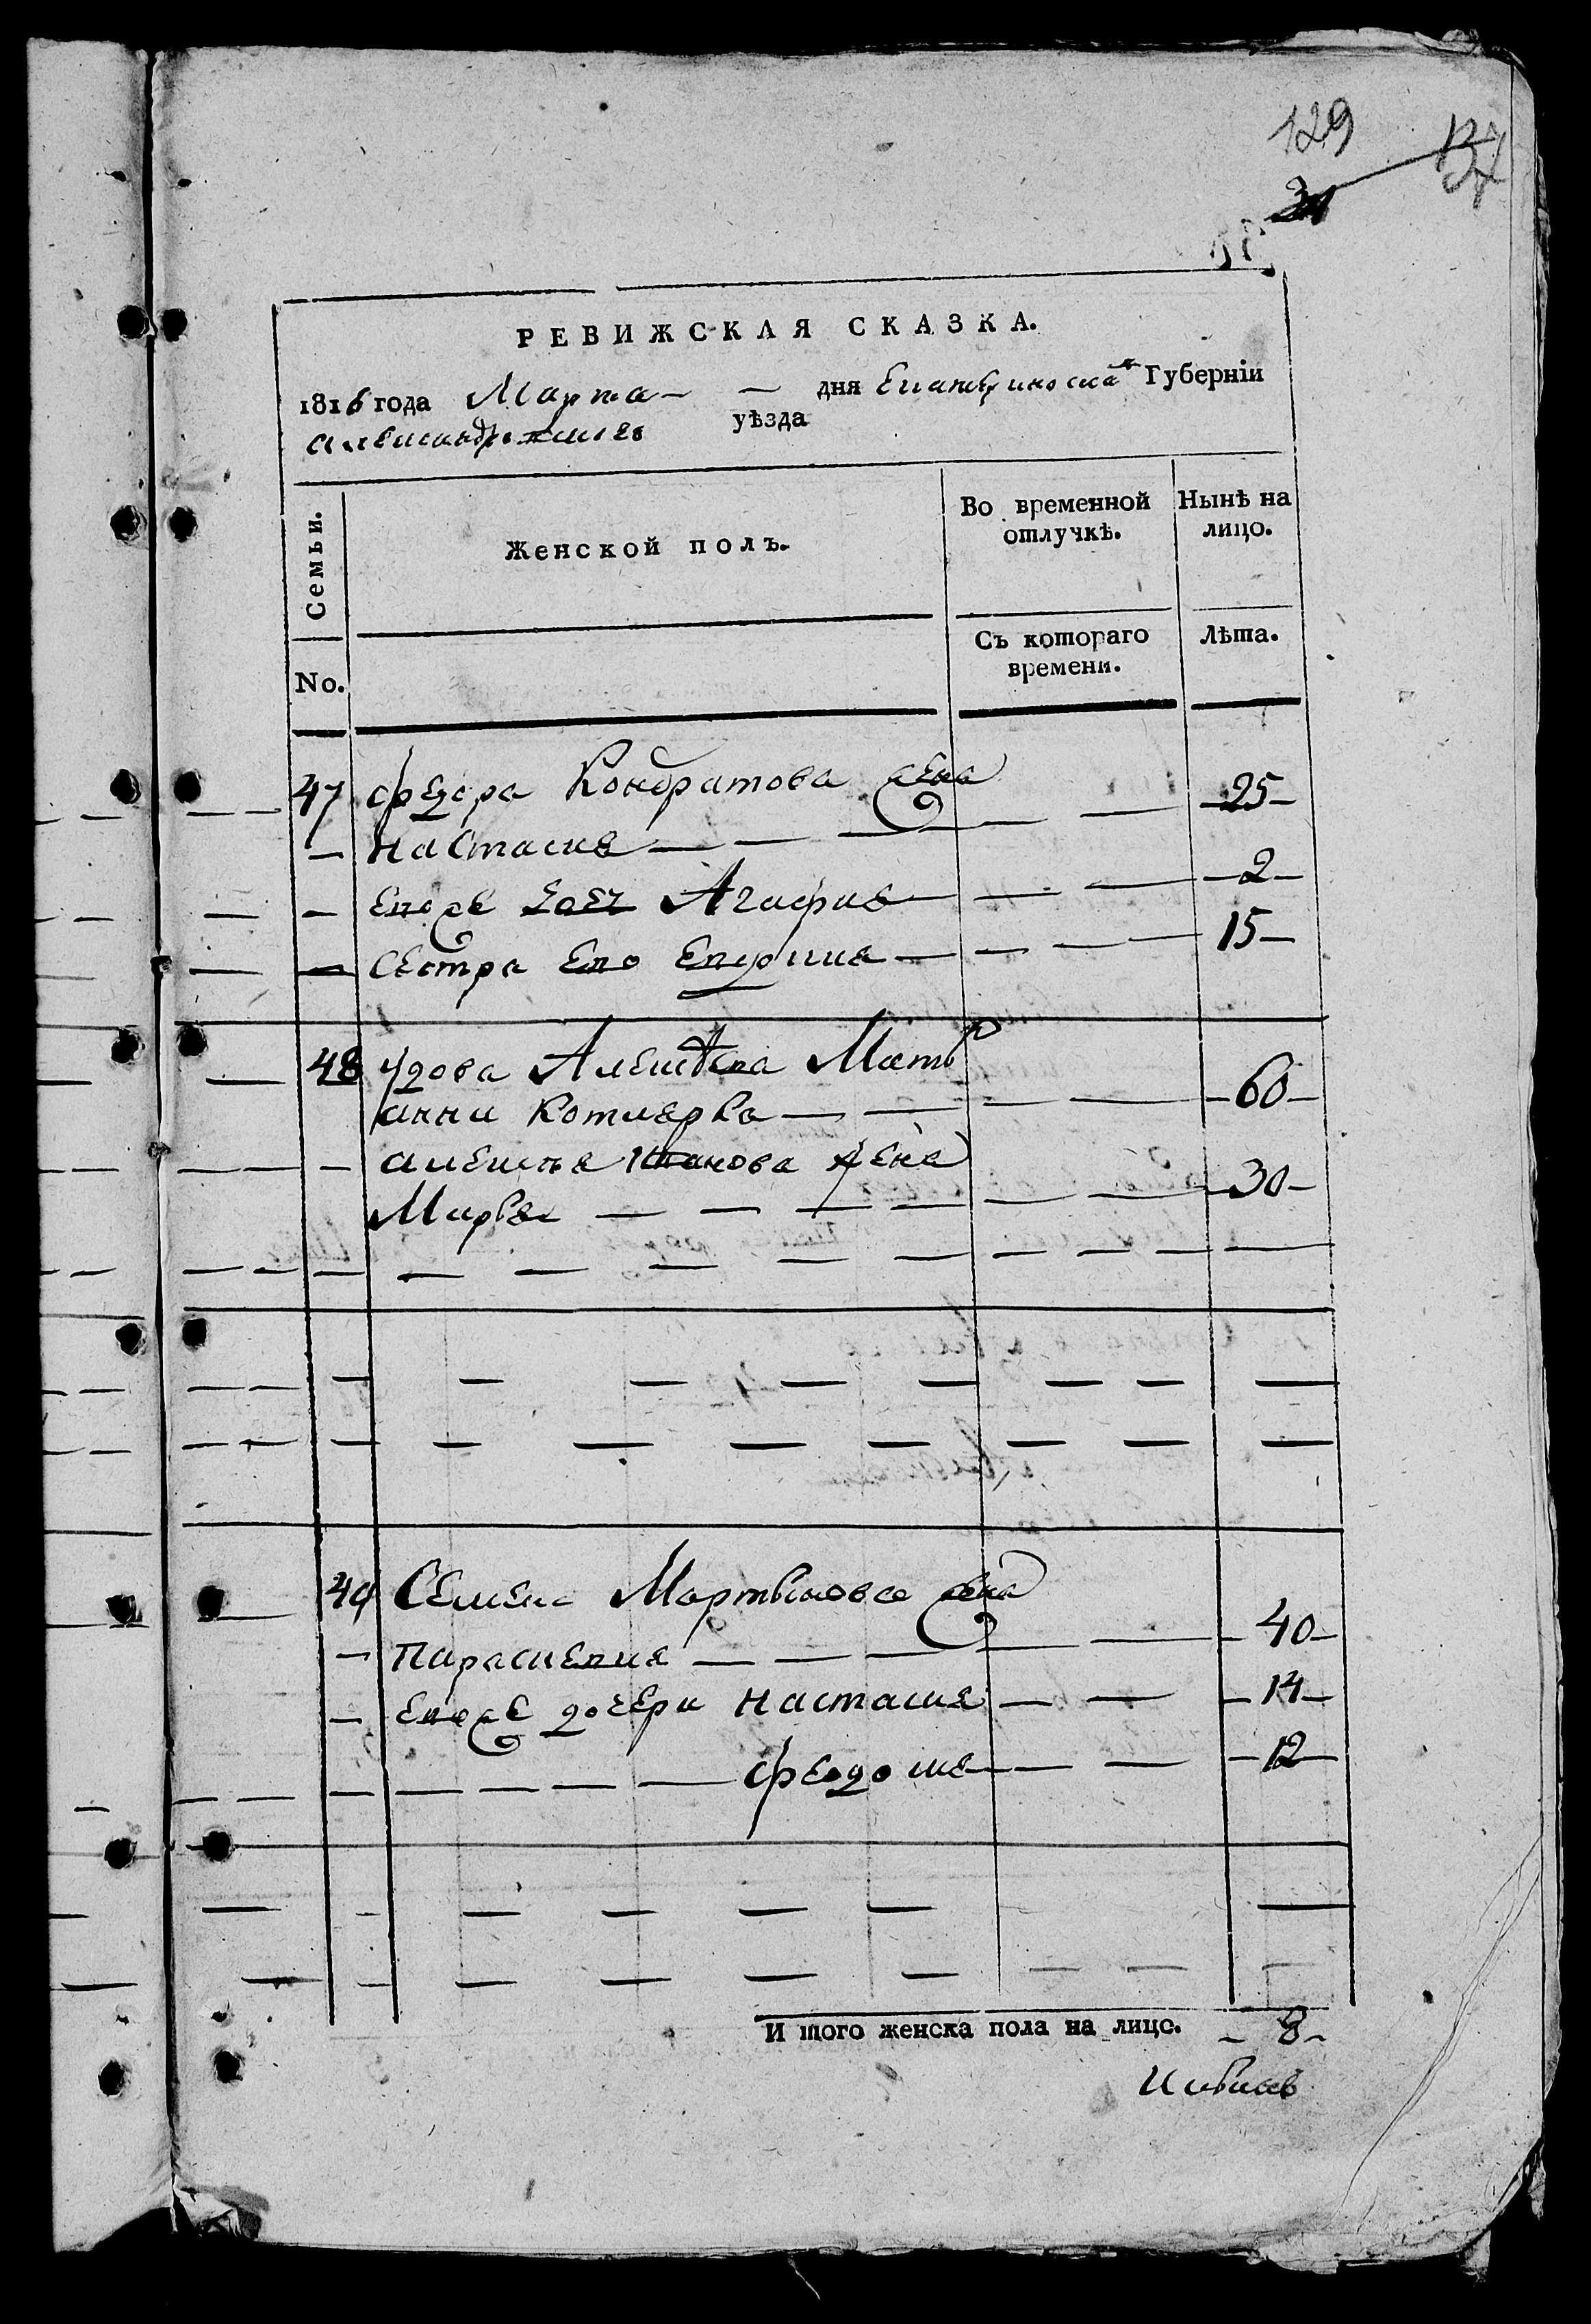 129
34
РЕВИЖСКАЯ СКАЗКА.
1816 года Марта — — дня Екатериноска Губерніи
Александрискаго уѣзда
Семьи.
Женской полъ.
Во временной отлучкѣ.
Нынѣ на лицо.
No.
Съ котораго времени.
Лѣта.
47 Федора Кондратова жена
— Настасия — — — 25
— Егоже дочь Агафия — — — 2
— Сестра Его Евдокия — — — 15
48 Удова Алексѣева Мать
Анна Котлярка — — — 60
— Алексѣя Иванова жена
Марья — — — — 30
49 Семена Мартынова жена
— Парасковия — — — 40
— Егоже дочери Настасия — — 14
— — — — Феодосия — — 12
И того женска пола на лицо. — 8 —